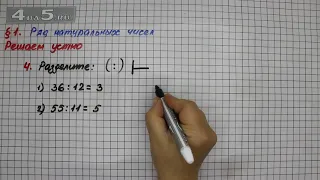 4АЛ5.ru
§1. Ряд натуральных чисел
Решаем устно
4. Разделите: (:)
1) 36:12=3
2) 55:11=5